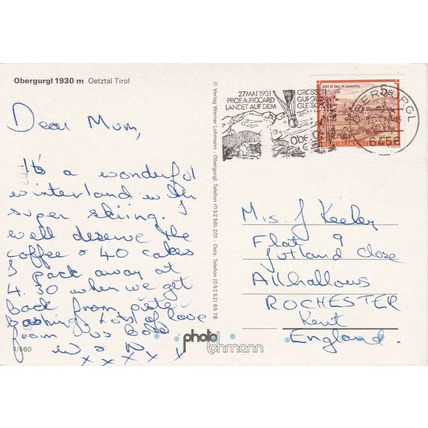 Obergurgl 1930 m Oetztal Tirol
Dear Mum,
It's a wonderful
winterland with
super skiing. I
well deserve the
coffee + 40 cakes
I pack away at
4.30 when we get
back from piste
bashing. Lots of love
from us both
x x x x x
1/560
© Verlag Werner Lohmann - Obergurgl, Telefon (0 52 56) 201 - Oetz, Telefon (0 52 52) 65 78
27 MAI 1931
PROF. A. PICCARD
LANDET AUF DEM
GROSSEN
GURGLER
OBERGURGL
6456
Mrs. J Keeler
Flat 9
Jutland Close
Allhallows
ROCHESTER
Kent
England.
photo
lohmann